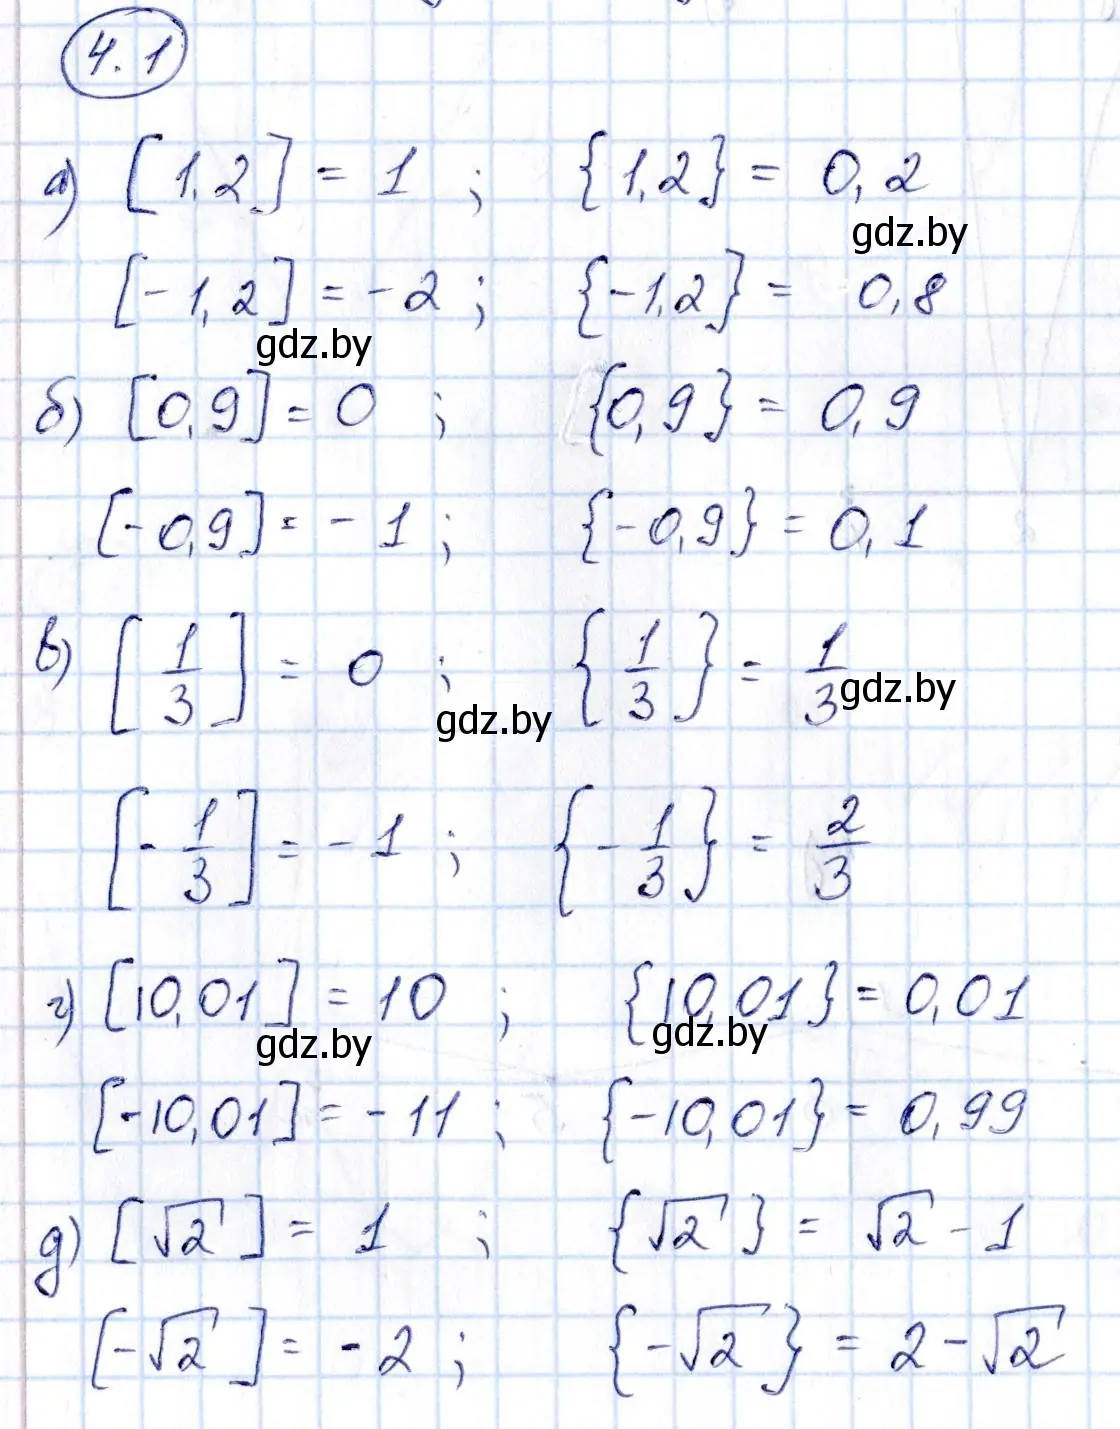 4.1
а) [1,2] = 1 ; {1,2} = 0,2
gdz.by
[-1,2] = -2 ; {-1,2} = 0,8
gdz.by
б) [0,9] = 0 ; {0,9} = 0,9
[-0,9] = -1 ; {-0,9} = 0,1
в) [1/3] = 0 ; {1/3} = 1/3
gdz.by
gdz.by
[-1/3] = -1 ; {-1/3} = 2/3
г) [10,01] = 10 ; {10,01} = 0,01
gdz.by gdz.by
[-10,01] = -11 ; {-10,01} = 0,99
д) [√2] = 1 ; {√2} = √2 - 1
[-√2] = -2 ; {-√2} = 2 - √2